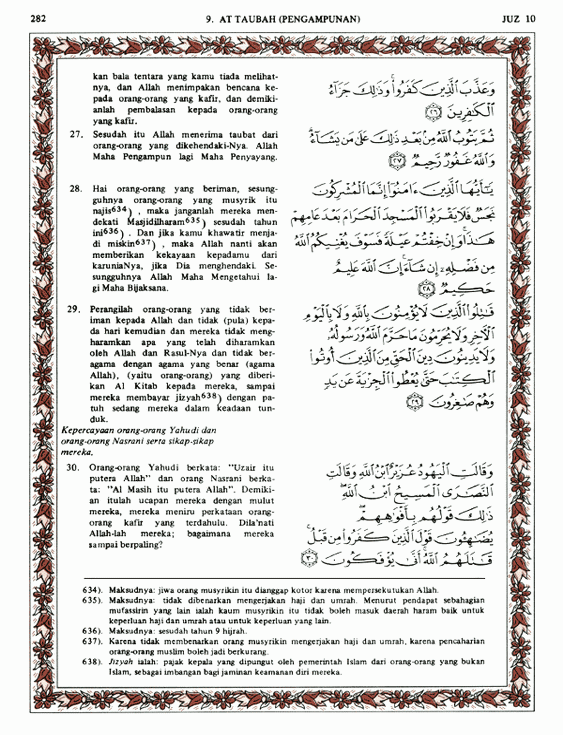 282
9. AT TAUBAH (PENGAMPUNAN)
JUZ 10
kan bala tentara yang kamu tiada melihat-
nya, dan Allah menimpakan bencana ke-
pada orang-orang yang kafir, dan demiki-
anlah pembalasan kepada orang-orang
yang kafir.
27. Sesudah itu Allah menerima taubat dari
orang-orang yang dikehendaki-Nya. Allah
Maha Pengampun lagi Maha Penyayang.
28. Hai orang-orang yang beriman, sesung-
guhnya orang-orang yang musyrik itu
najis634) , maka janganlah mereka men-
dekati Masjidilharam635) sesudah tahun
ini636) . Dan jika kamu khawatir menja-
di miskin637) , maka Allah nanti akan
memberikan kekayaan kepadamu dari
karuniaNya, jika Dia menghendaki. Se-
sungguhnya Allah Maha Mengetahui la-
gi Maha Bijaksana.
29. Perangilah orang-orang yang tidak ber-
iman kepada Allah dan tidak (pula) kepa-
da hari kemudian dan mereka tidak meng-
haramkan apa yang telah diharamkan
oleh Allah dan Rasul-Nya dan tidak ber-
agama dengan agama yang benar (agama
Allah), (yaitu orang-orang) yang diberi-
kan Al Kitab kepada mereka, sampai
mereka membayar jizyah638) dengan pa-
tuh sedang mereka dalam keadaan tun-
duk.
Kepercayaan orang-orang Yahudi dan
orang-orang Nasrani serta sikap-sikap
mereka.
30. Orang-orang Yahudi berkata: "Uzair itu
putera Allah" dan orang Nasrani berka-
ta: "Al Masih itu putera Allah". Demiki-
an itulah ucapan mereka dengan mulut
mereka, mereka meniru perkataan orang-
orang kafir yang terdahulu. Dila'nati
Allah-lah mereka; bagaimana mereka
sampai berpaling?
وَعَذَّبَ ٱلَّذِينَ كَفَرُوا۟ وَذَٰلِكَ جَزَآءُ
ٱلْكَٰفِرِينَ ٢٦
ثُمَّ يَتُوبُ ٱللَّهُ مِنۢ بَعْدِ ذَٰلِكَ عَلَىٰ مَن يَشَآءُ
وَٱللَّهُ غَفُورٌ رَّحِيمٌ ٢٧
يَٰٓأَيُّهَا ٱلَّذِينَ ءَامَنُوٓا۟ إِنَّمَا ٱلْمُشْرِكُونَ
نَجَسٌ فَلَا يَقْرَبُوا۟ ٱلْمَسْجِدَ ٱلْحَرَامَ بَعْدَ عَامِهِمْ
هَٰذَا وَإِنْ خِفْتُمْ عَيْلَةً فَسَوْفَ يُغْنِيكُمُ ٱللَّهُ
مِن فَضْلِهِۦٓ إِن شَآءَ إِنَّ ٱللَّهَ عَلِيمٌ
حَكِيمٌ ٢٨
قَٰتِلُوا۟ ٱلَّذِينَ لَا يُؤْمِنُونَ بِٱللَّهِ وَلَا بِٱلْيَوْمِ
ٱلْءَاخِرِ وَلَا يُحَرِّمُونَ مَا حَرَّمَ ٱللَّهُ وَرَسُولُهُۥ
وَلَا يَدِينُونَ دِينَ ٱلْحَقِّ مِنَ ٱلَّذِينَ أُوتُوا۟
ٱلْكِتَٰبَ حَتَّىٰ يُعْطُوا۟ ٱلْجِزْيَةَ عَن يَدٍ
وَهُمْ صَٰغِرُونَ ٢٩
وَقَالَتِ ٱلْيَهُودُ عُزَيْرٌ ٱبْنُ ٱللَّهِ وَقَالَتِ
ٱلنَّصَٰرَى ٱلْمَسِيحُ ٱبْنُ ٱللَّهِ
ذَٰلِكَ قَوْلُهُم بِأَفْوَٰهِهِمْ
يُضَٰهِـُٔونَ قَوْلَ ٱلَّذِينَ كَفَرُوا۟ مِن قَبْلُ
قَٰتَلَهُمُ ٱللَّهُ أَنَّىٰ يُؤْفَكُونَ ٣٠
634). Maksudnya: jiwa orang musyrikin itu dianggap kotor karena mempersekutukan Allah.
635). Maksudnya: tidak dibenarkan mengerjakan haji dan umrah. Menurut pendapat sebahagian
mufassirin yang lain ialah kaum musyrikin itu tidak boleh masuk daerah haram baik untuk
keperluan haji dan umrah atau untuk keperluan yang lain.
636). Maksudnya: sesudah tahun 9 hijrah.
637). Karena tidak membenarkan orang musyrikin mengerjakan haji dan umrah, karena pencaharian
orang-orang muslim boleh jadi berkurang.
638). Jizyah ialah: pajak kepala yang dipungut oleh pemerintah Islam dari orang-orang yang bukan
Islam, sebagai imbangan bagi jaminan keamanan diri mereka.